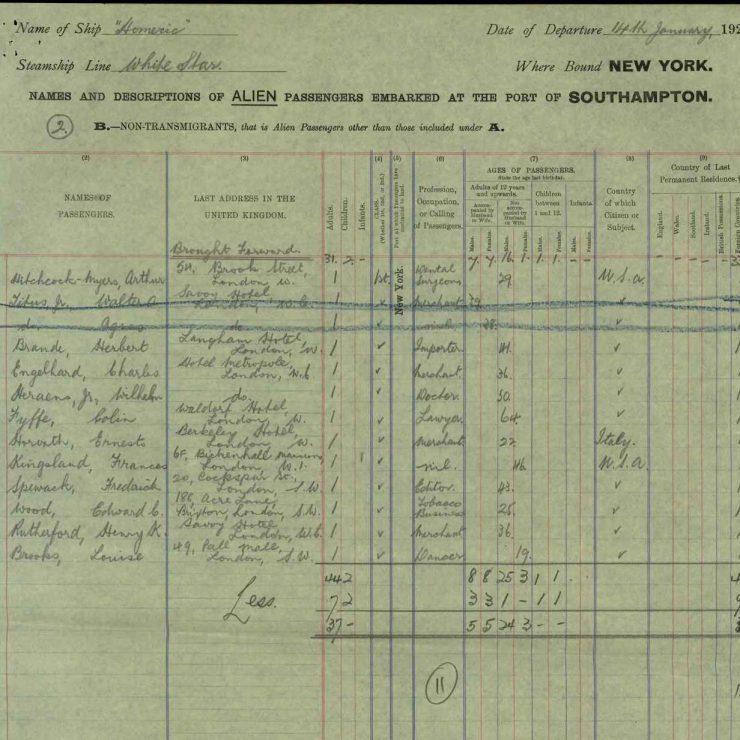 Name of Ship "Homeric"
Date of Departure 14th January, 192
Steamship Line White Star.
Where Bound NEW YORK.
NAMES AND DESCRIPTIONS OF ALIEN PASSENGERS EMBARKED AT THE PORT OF SOUTHAMPTON.
2.
B.—NON-TRANSMIGRANTS, that is Alien Passengers other than those included under A.
(2) (3) (4) (5) (6) (7) (8) (9)
NAMES OF PASSENGERS.
LAST ADDRESS IN THE UNITED KINGDOM.
Adults. Children. Infants.
CLASS. (Whether 1st, 2nd, or 3rd.)
Port at which Passengers have contracted to land.
Profession, Occupation, or Calling of Passengers.
AGES OF PASSENGERS.
State the age last birthday.
Adults of 12 years and upwards.
Accompanied by Husband or Wife.
Not accompanied by Husband or Wife.
Children between 1 and 12.
Infants.
Males. Females. Males. Females. Males. Females. Males. Females.
Country of which Citizen or Subject.
Country of Last Permanent Residence.
England. Wales. Scotland. Ireland. British Possessions. Foreign Countries.
Brought Forward. 31. 2. 7. 7. 16. 1. 1. 1.
New York.
Hitchcock-Myers, Arthur 54, Brook Street, London W. 1 1st. Dental Surgeon 29. U.S.A.
Titus, Jr. Walter Savoy Hotel London, W.C. 1 Merchant 39
do. Agnes do 1 nil. 28.
Brande, Herbert Langham Hotel, London, W. 1 Importer 41.
Engelhard, Charles Hotel Metropole, London, W.C. 1 Merchant 36.
Heraeus, Jr. Wilhelm do. 1 Doctor 50.
Fyffe, Colin Waldorf Hotel, London W. 1 Lawyer 64
Horvath, Ernesto Berkeley Hotel, London, W. 1 Merchant 22 Italy.
Kingsland, Frances 6F, Bickenhall Mansions London, W.1. 1 nil. 46. U.S.A.
Spewack, Fredrich 20, Cockspur St. London, S.W. 1 Editor 43.
Wood, Edward C. 188 Acre Lane, Brixton, London, S.W. 1 Tobacco Business 25.
Rutherford, Henry K. Savoy Hotel London, W.C. 1 Merchant 36.
Brooks, Louise 49, Pall Mall, London, S.W. 1 Dancer 19.
44 2 8 8 25 3 1 1
Less. 7 2 3 3 1 - 1 1
37 - 5 5 24 3 - -
11